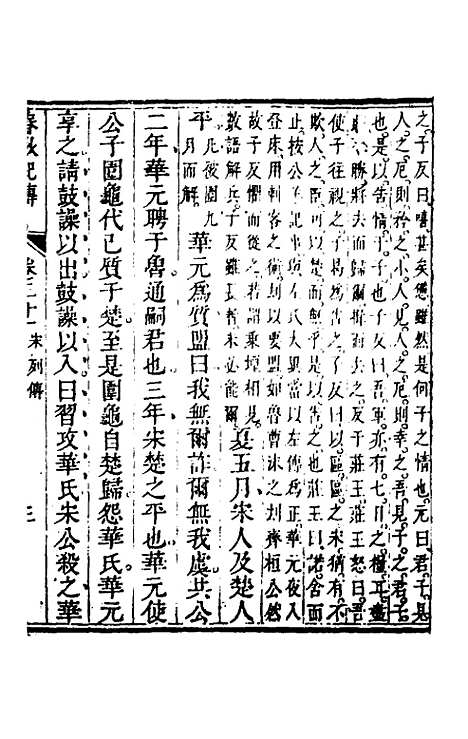 之子反曰嘻甚矣憊雖然是何子之情也元曰君子見
人之厄則矜之小人見人之厄則幸之吾見子之君子
也是以告情于子也子反曰吾軍亦有七日之糧耳盡
此不勝將去而歸爾揖而去反于莊王莊王怒曰吾
使子往視之子曷爲告之子反曰以區區之宋猶有不
欺人之臣可以楚而無乎是以告之也莊王曰諾舍而
止按公羊記事失實當以左傳爲正華元夜入
登床用刺客之術劫以要盟如魯曹沫之刦齊桓公然
故子反懼而從之若謂乘堙相見
數語解兵子反雖長者未必能爾夏五月宋人及楚人
平此彼圍九月而解華元爲質盟曰我無爾詐爾無我虞共公
二年華元聘于魯通嗣君也三年宋楚之平也華元使
公子圍龜代己質于楚至是圍龜自楚歸怨華氏華元
享之請鼓譟以出鼓譟以入曰習攻華氏宋公殺之華
春秋紀傳
卷三十一宋列傳
三